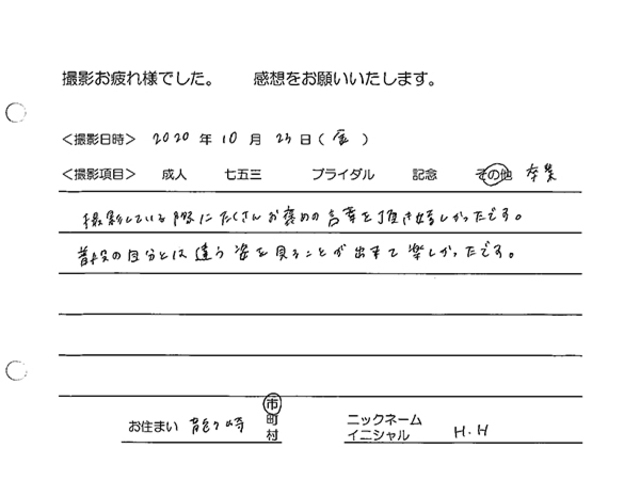 撮影お疲れ様でした。　感想をお願いいたします。
＜撮影日時＞ 2020 年 10 月 23 日（ 金 ）
＜撮影項目＞ 成人 七五三 ブライダル 記念 その他 卒業
撮影している際にたくさんお褒めの言葉を頂き嬉しかったです。
普段の自分とは違う姿を見ることが出来て楽しかったです。
お住まい 龍ケ崎 市 町 村
ニックネーム イニシャル H.H